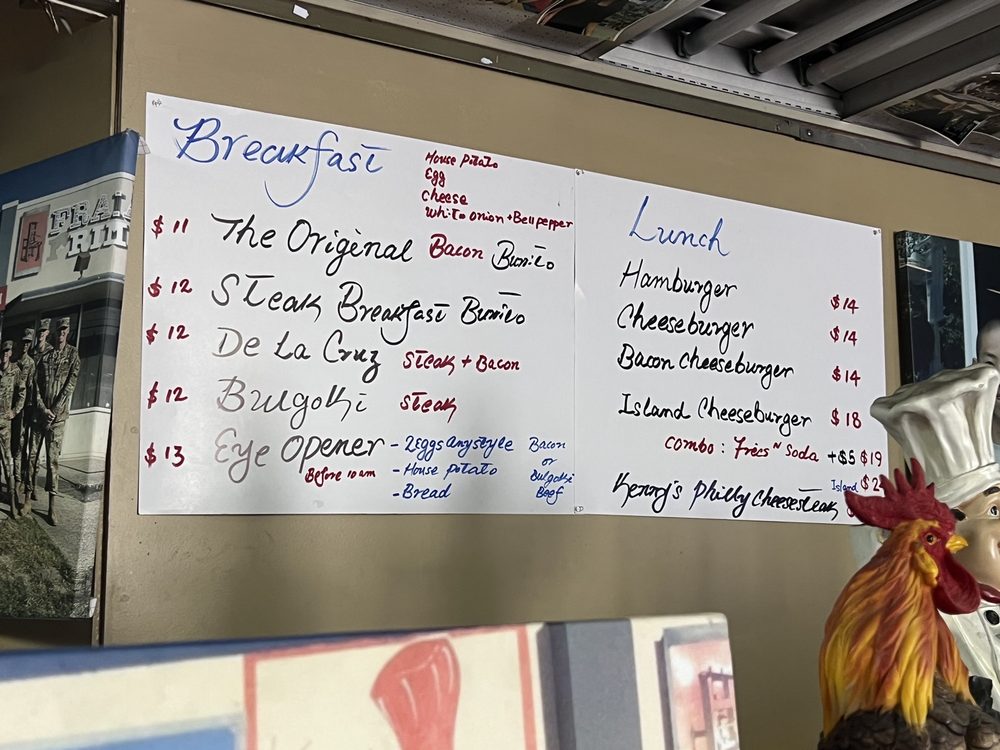 Breakfast
House Potato
Egg
Cheese
White onion + Bell pepper
$11 The Original Bacon Burrito
$12 Steak Breakfast Burrito
$12 De La Cruz Steak + Bacon
$12 Bulgolki Steak
$13 Eye Opener - 2Eggs Anystyle
Before 10am
- House Potato
- Bread
Bacon
or
Bulgolki
Beef
Lunch
Hamburger $14
Cheeseburger $14
Bacon Cheeseburger $14
Island Cheeseburger $18
Combo: Fries N Soda +$5 $19
Island
Kenny's Philly Cheesesteak